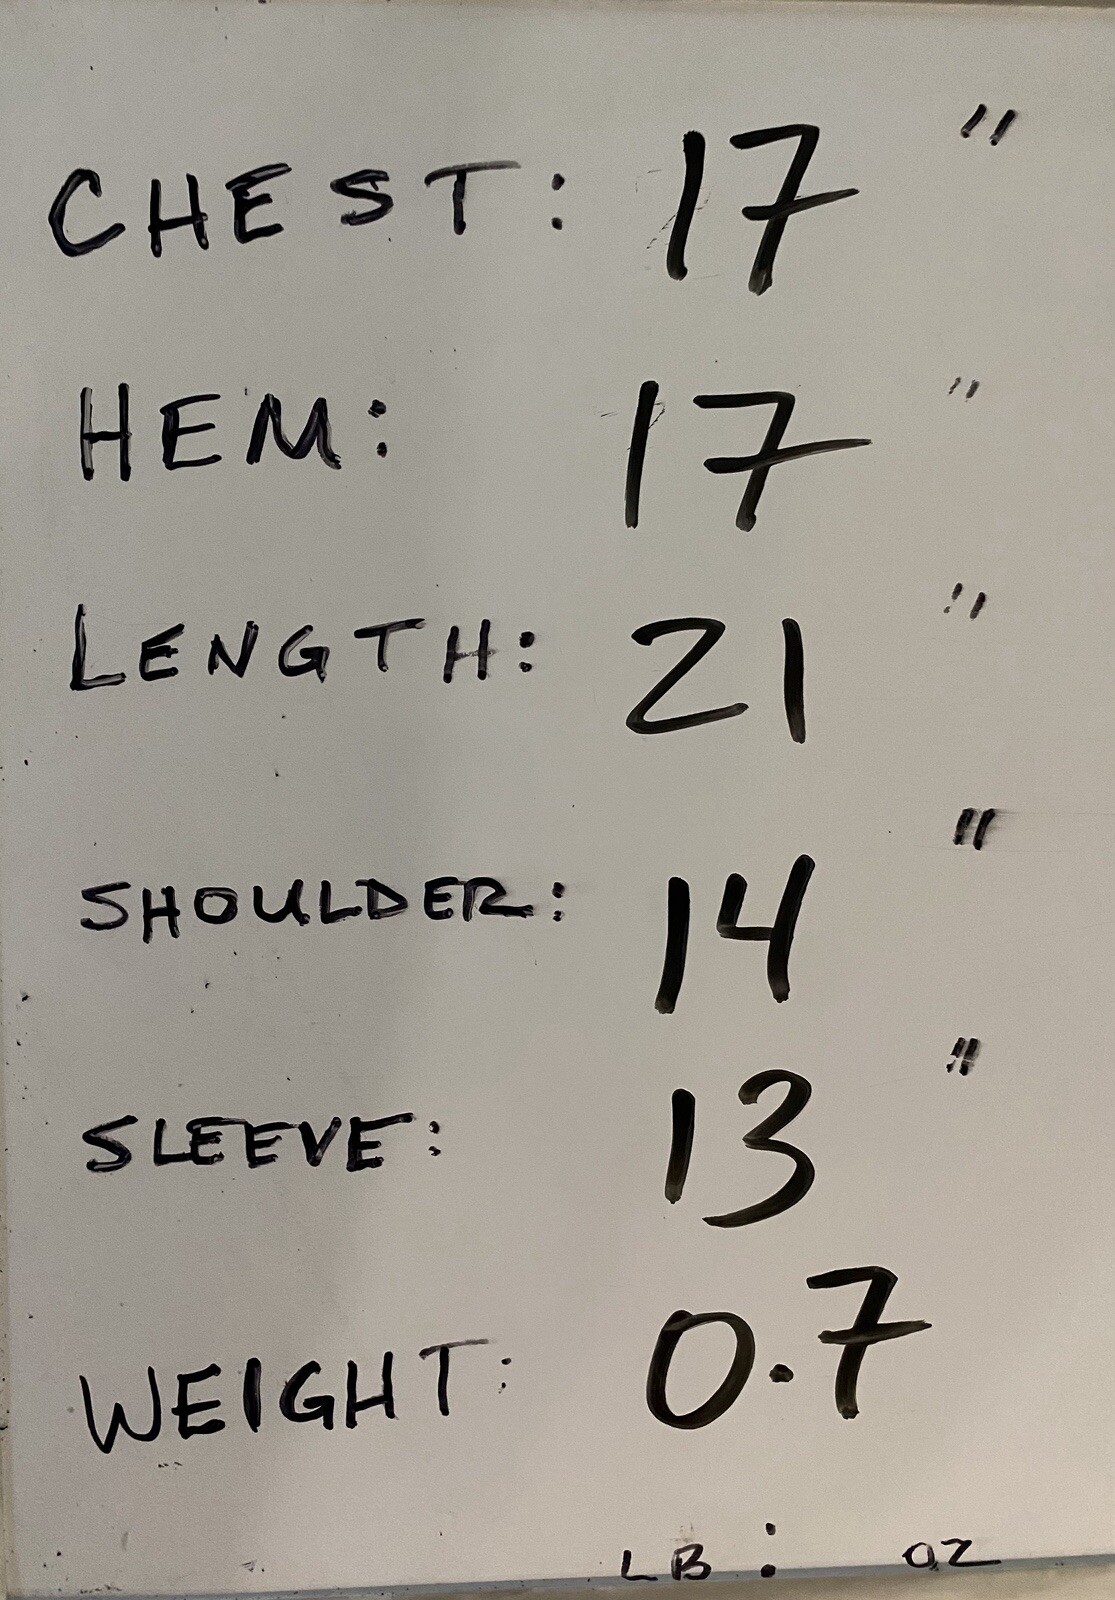 CHEST: 17 "
HEM: 17 "
LENGTH: 21 "
SHOULDER: 14 "
SLEEVE: 13 "
WEIGHT: 0.7
LB : OZ